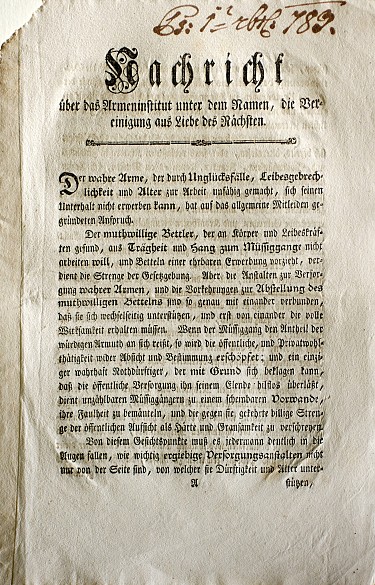 783.
Nachricht
über das Armeninstitut unter dem Namen, die Ver-
einigung aus Liebe des Nächsten.
Der wahre Arme, der durch Unglücksfälle, Leibesgebrech-
lichkeit und Alter zur Arbeit unfähig gemacht, sich seinen
Unterhalt nicht erwerben kann, hat auf das allgemeine Mitleiden ge-
gründeten Anspruch.
Der muthwillige Bettler, der an Körper und Leibeskräf-
ten gesund, aus Trägheit und Hang zum Müssiggange nicht
arbeiten will, und Betteln einer ehrbaren Erwerbung vorzieht, ver-
dient die Strenge der Gesetzgebung. Aber die Anstalten zur Versor-
gung wahrer Armen, und die Vorkehrungen zur Abstellung des
muthwilligen Bettelns sind so genau mit einander verbunden,
daß sie sich wechselseitig unterstützen, und erst von einander die volle
Wirksamkeit erhalten müssen. Wenn der Müssiggang den Antheil der
würdigen Armuth an sich reißt, so wird die öffentliche, und Privatwohl-
thätigkeit wider Absicht und Bestimmung erschöpfet: und ein einzi-
ger wahrhaft Nothdürftiger, der mit Grund sich beklagen kann,
daß die öffentliche Versorgung ihn seinem Elende hilflos überläßt,
dient unzählbaren Müssiggängern zu einem scheinbaren Vorwande,
ihre Faulheit zu bemänteln, und die gegen sie gekehrte billige Stren-
ge der öffentlichen Aufsicht als Härte und Grausamkeit zu verschreyen.
Von diesem Gesichtspunkte muß es jedermann deutlich in die
Augen fallen, wie wichtig ergiebige Versorgungsanstalten nicht
nur von der Seite sind, von welcher sie Dürftigkeit und Alter unter-
A stützen,